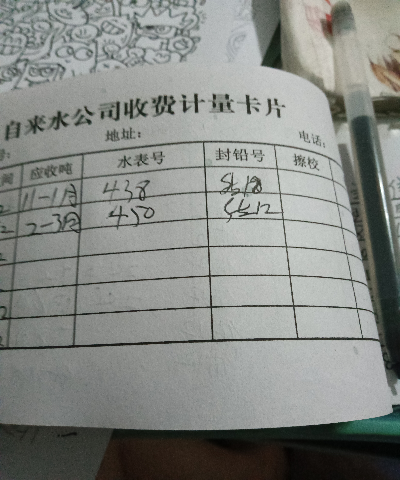 自来水公司收费计量卡片
号: 地址: 电话:
间 应收吨 水表号 封铅号 擦校
2 11-1月 438
2 2-3月 450